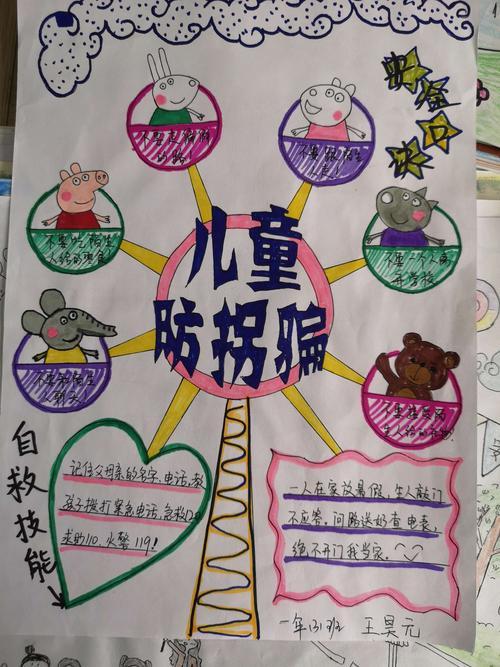 安全口诀
不要走偏僻
的路
不要跟陌生
人走!
不要吃陌生
人给的零食
不要一个人离
开学校
儿童
防拐骗
不要和陌生
人聊天!
不要接受陌
生人给的礼物!
自救技能
记住父母亲的名字、电话,教
孩子拨打紧急电话,急救120
求助110,火警119!
一人在家放暑假,生人敲门
不应答,问路送奶查电表,
绝不开门我当家。
一年(3)班 王昊元